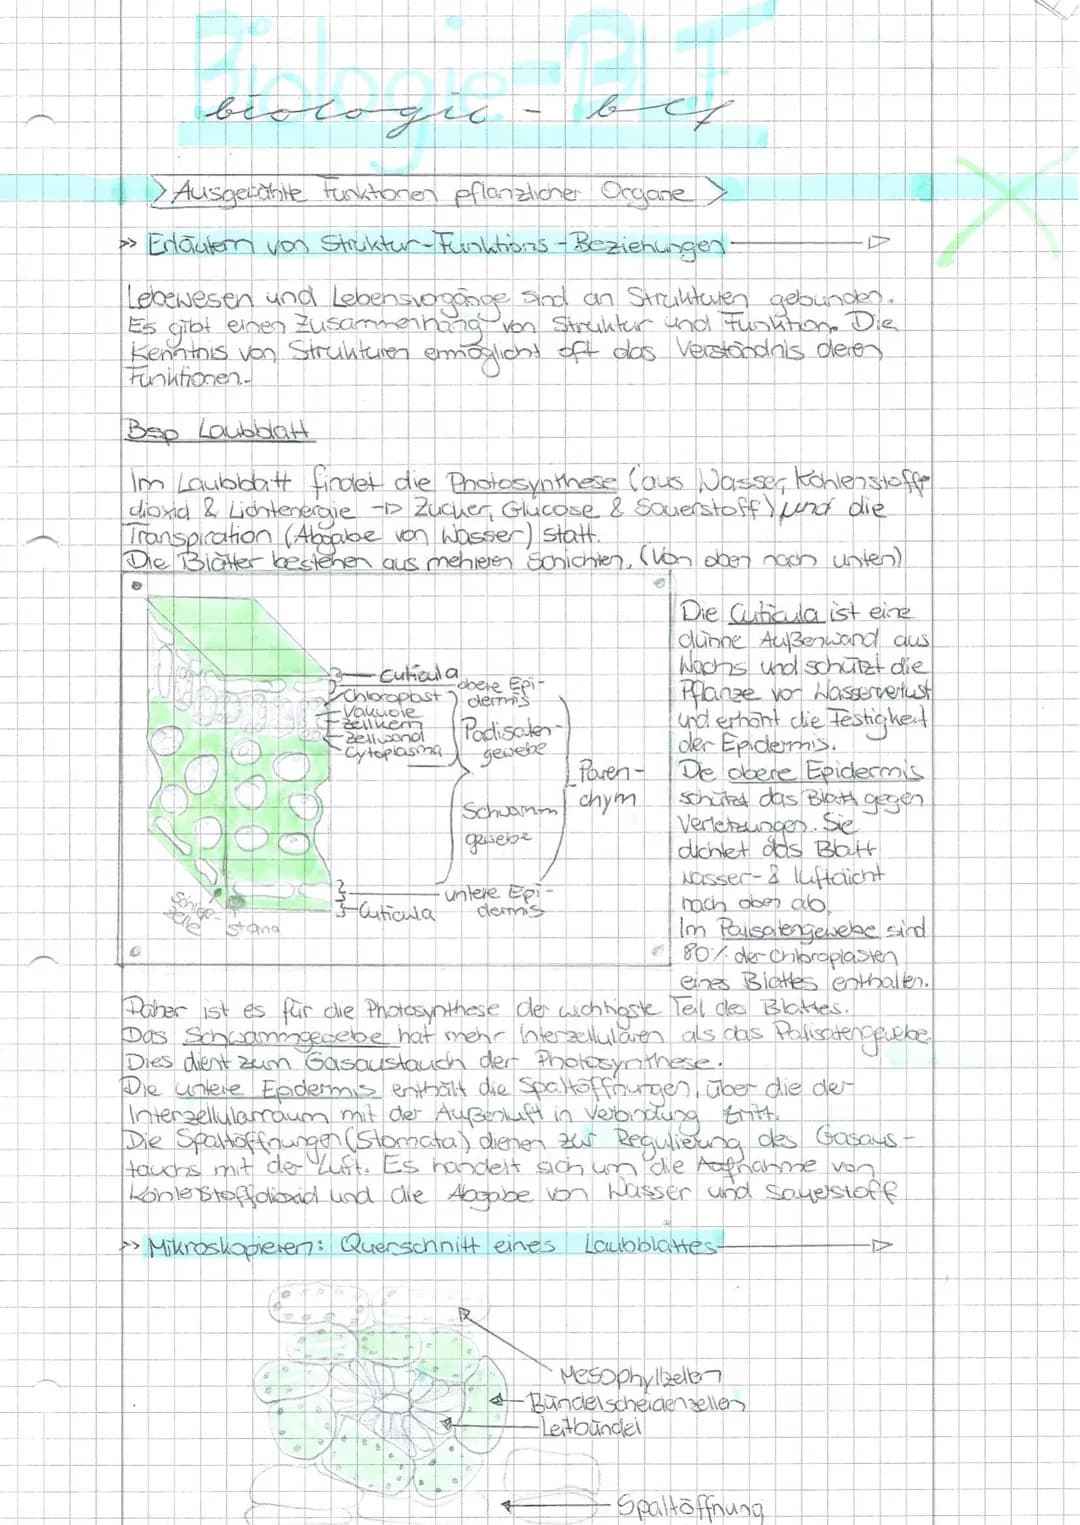 Biologie-BLF
biologie - blf
Ausgewählte Funktionen pflanzlicher Organe
>> Erläutern von Struktur-Funktions-Beziehungen
Lebewesen und Lebensvorgänge sind an Strukturen gebunden.
Es gibt einen Zusammenhang von Struktur und Funktion. Die
Kenntnis von Strukturen ermöglicht oft das Verständnis deren
Funktionen.
Bsp Laubblatt
Im Laubblatt findet die Photosynthese (aus Wasser, Kohlenstoff-
dioxid & Lichtenergie -▷ Zucker, Glucose & Sauerstoff) und die
Transpiration (Abgabe von Wasser) statt.
Die Blätter bestehen aus mehreren Schichten, (Von oben nach unten)
Cuticula
obere Epi-
dermis
Chloroplast
Vakuole
Zellkern
Zellwand
Cytoplasma
Padisaden-
gewebe
Schwamm
gewebe
Paren-
chym
untere Epi-
dermis
Cuticula
Schließ-
zelle
Die Cuticula ist eine
dünne Außenwand aus
Wachs und schützt die
Pflanze vor Wasserverlust
und erhöht die Festigkeit
der Epidermis.
Die obere Epidermis
schützt das Blatt gegen
Verletzungen. Sie
dichtet das Blatt
wasser- & luftdicht
nach oben ab.
Im Palisatengewebe sind
80% der Chloroplasten
eines Blattes enthalten.
Daher ist es für die Photosynthese der wichtigste Teil des Blattes.
Das Schwammgewebe hat mehr Interzellulären als das Palisatengewebe.
Dies dient zum Gasaustauch der Photosynthese.
Die untere Epidermis enthält die Spaltöffnungen, über die der
Interzellularraum mit der Außenluft in Verbindung tritt.
Die Spaltöffnungen (Stomata) dienen zur Regulierung des Gasaus-
tauchs mit der Luft. Es handelt sich um die Aufnahme von
Kohlenstoffdioxid und die Abgabe von Wasser und Sauerstoff
>> Mikroskopieren: Querschnitt eines Laubblattes
Mesophyllzellen
Bündelscheidenzellen
Leitbündel
Spaltöffnung